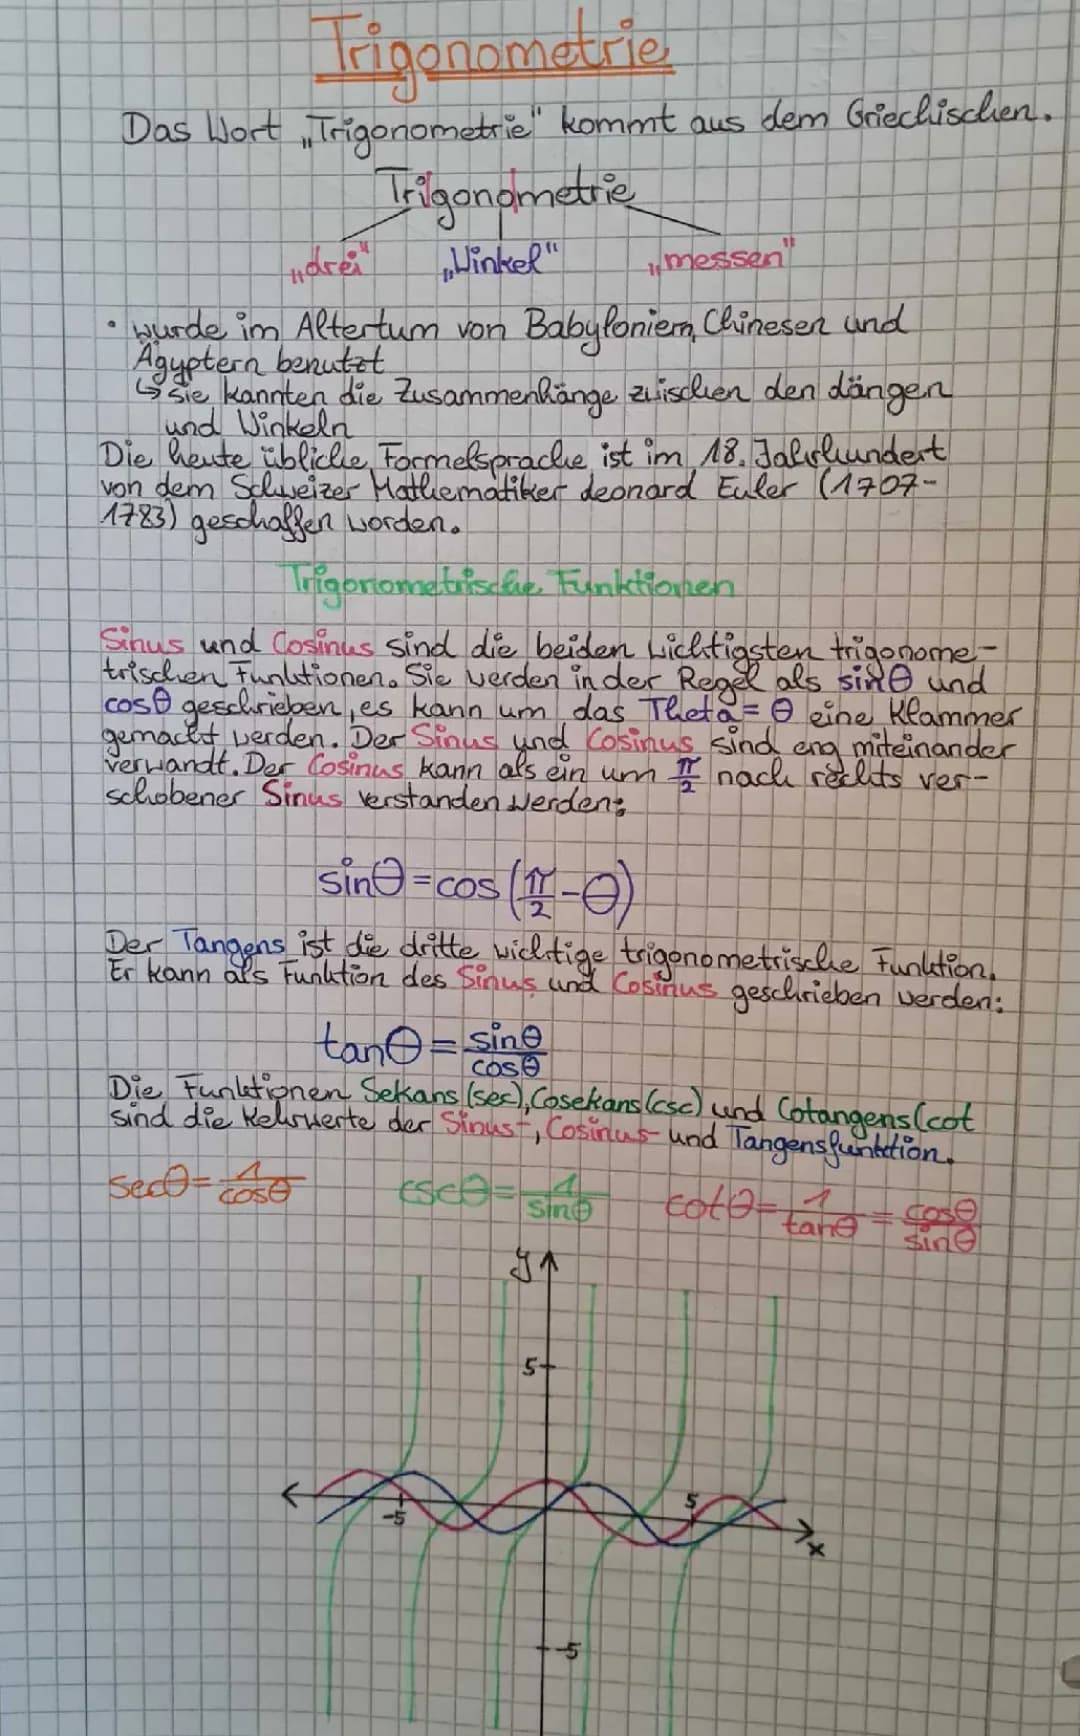 Trigonometrie
Das Wort „Trigonometrie" kommt aus dem Griechischen.
Trigonometrie
„drei" „Winkel" „messen"
• wurde im Altertum von Babyloniern, Chinesen und
Ägyptern benutzt
↳ sie kannten die Zusammenhänge zwischen den Längen
und Winkeln
Die heute übliche Formelsprache ist im 18. Jahrhundert
von dem Schweizer Mathematiker Leonard Euler (1707-
1783) geschaffen worden.
Trigonometrische Funktionen
Sinus und Cosinus sind die beiden wichtigsten trigonome-
trischen Funktionen. Sie werden in der Regel als sinθ und
cosθ geschrieben, es kann um das Theta = θ eine Klammer
gemacht werden. Der Sinus und Cosinus sind eng miteinander
verwandt. Der Cosinus kann als ein um π/2 nach rechts ver-
schobener Sinus verstanden werden:
sinθ = cos(π/2 - θ)
Der Tangens ist die dritte wichtige trigonometrische Funktion.
Er kann als Funktion des Sinus und Cosinus geschrieben werden:
tanθ = sinθ/cosθ
Die Funktionen Sekans (sec), Cosekans (csc) und Cotangens (cot
sind die Kehrwerte der Sinus-, Cosinus- und Tangensfunktion.
secθ = 1/cosθ cscθ = 1/sinθ cotθ = 1/tanθ = cosθ/sinθ
y
5
-5 5
x
-5